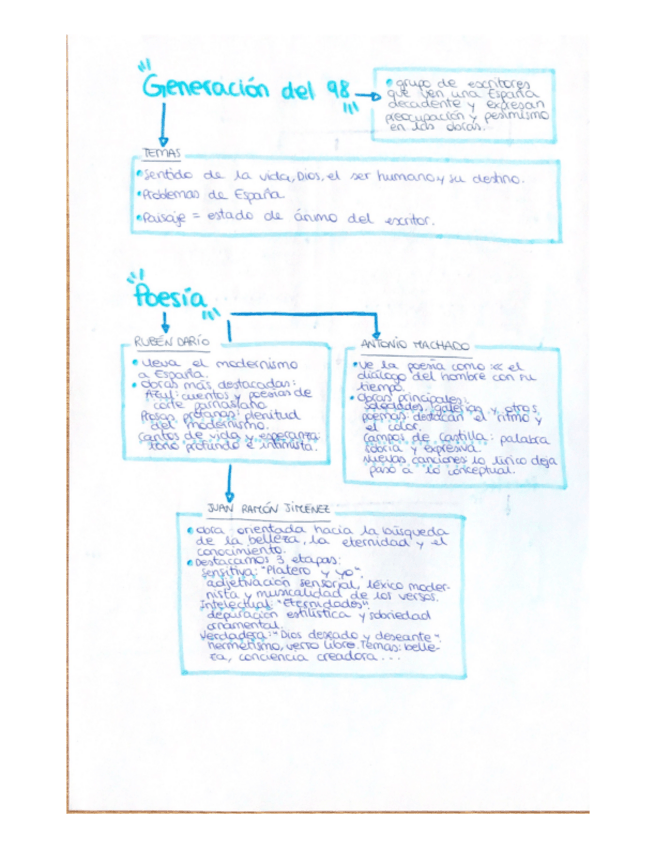 Generación del 98
• grupo de escritores
que ven una España
decadente y expresan
preocupación y pesimismo
en las obras.
TEMAS
• Sentido de la vida, Dios, el ser humano y su destino.
• Problemas de España
• Paisaje = estado de ánimo del escritor.
Poesía
RUBÉN DARÍO
• lleva el modernismo
a España.
• obras más destacadas:
Azul: cuentos y poesías de
corte parnasiano.
Prosas profanas: plenitud
del modernismo.
Cantos de vida y esperanza:
tono profundo e intimista.
ANTONIO MACHADO
• ve la poesía como << el
diálogo del hombre con su
tiempo.
• Obras principales:
soledades, galerías y otros
poemas: destacan el ritmo y
el color.
campos de Castilla: palabra
sobria y expresiva.
Nuevas canciones: lo lírico deja
paso a lo conceptual.
JUAN RAMÓN JIMÉNEZ
• obra orientada hacia la búsqueda
de la belleza, la eternidad y el
conocimiento.
• Destacamos 3 etapas:
sensitiva: "Platero y yo".
adjetivación sensorial, léxico moder-
nista y musicalidad de los versos.
Intelectual: "Eternidades".
depuración estilística y sobriedad
ornamental.
Verdadera: "Dios deseado y deseante".
hermetismo, verso libre. Temas: belle-
za, conciencia creadora...